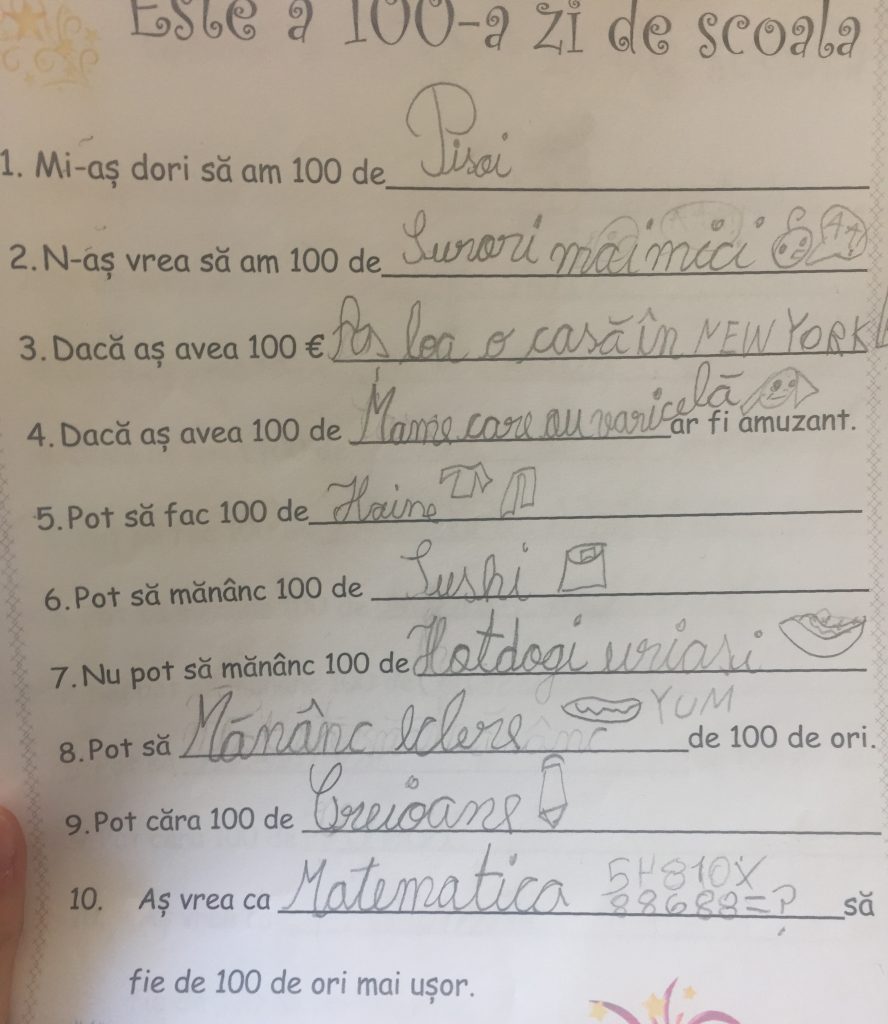 Este a 100-a zi de scoala
1. Mi-aș dori să am 100 de Pisoi
2. N-aș vrea să am 100 de Surori mai mici
3. Dacă aș avea 100 € Aș lea o casă în NEW YORK
4. Dacă aș avea 100 de Mame care au varicelă ar fi amuzant.
5. Pot să fac 100 de Haine
6. Pot să mănânc 100 de Sushi
7. Nu pot să mănânc 100 de Hotdogi uriasi
8. Pot să Mănânc eclere YUM de 100 de ori.
9. Pot căra 100 de Creioane
10. Aș vrea ca Matematica 54810X
88688=? să
fie de 100 de ori mai ușor.